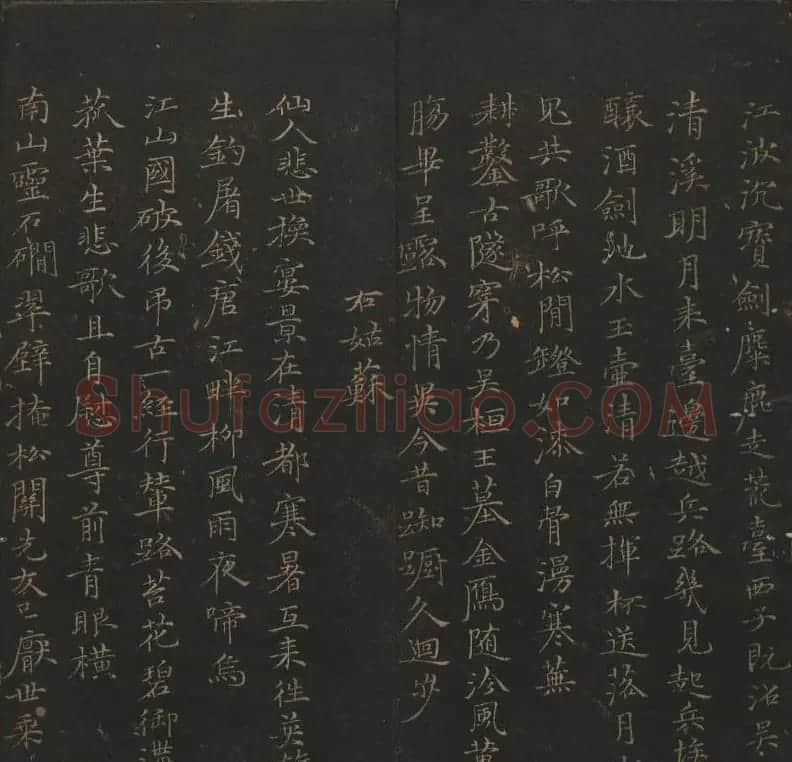 江波沉寶劍麋鹿走荒臺西子既沼吳
清溪明月来臺邊越兵路幾見兵埃
釀酒劍池水玉壺清若無揮杯送落月
見共歌呼松間鐙如漆白骨漫寒蕪
耕鑿古隧穿乃吳桓王墓金鴈随冷風
膓畢呈露物情吳今昔踟躕久迴步
右姑蘇
仙人悲世換宴景在清都寒暑互来往英
生釣屠錢唐江畔柳風雨夜啼烏
江山國破後弔古一經行輦路苔花碧御溝
菰葉生悲歌且自慰尊前青眼橫
南山靈石磵翠壁掩松關先友已厭世乘
Shufaziliao.COM